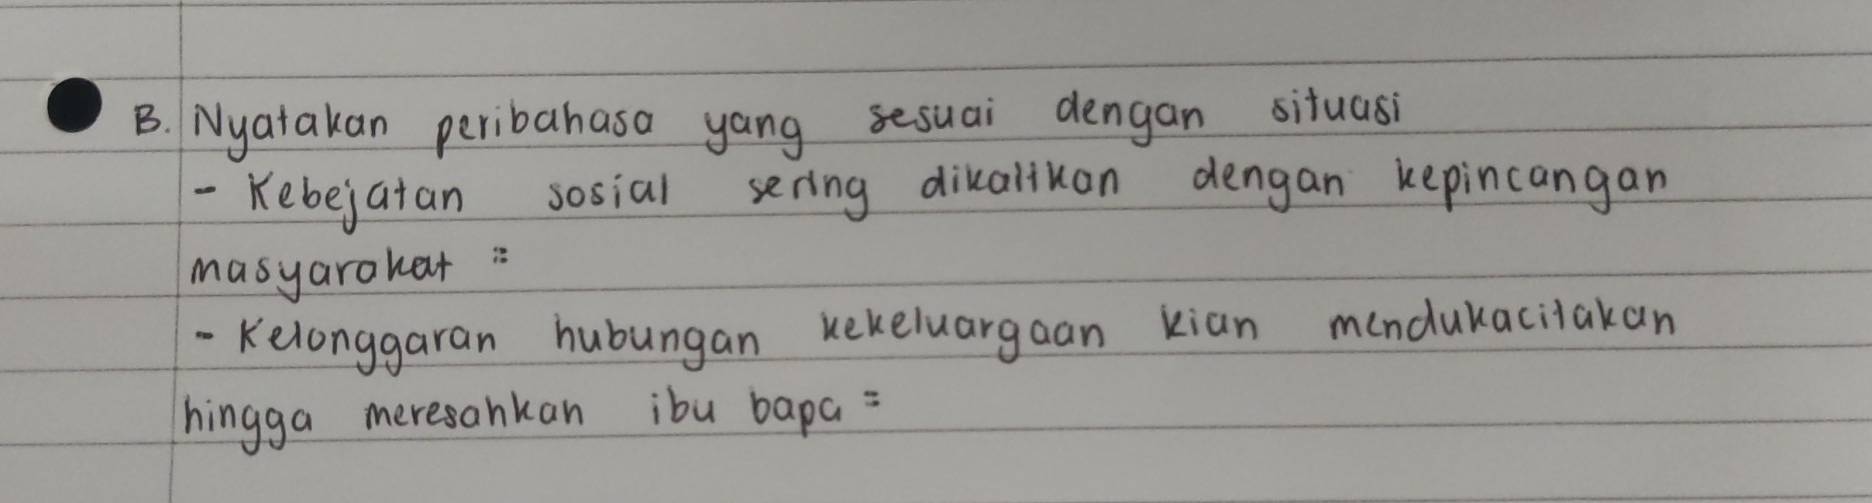 B. Nyatakan peribahasa yang sesuai dengan situasi
- Kebejatan sosial sering dikalikan dengan kepincangan
masyarakat =
- Kelonggaran hubungan kekeluargaan kian mendukacitakan
hingga meresahkan ibu bapa =